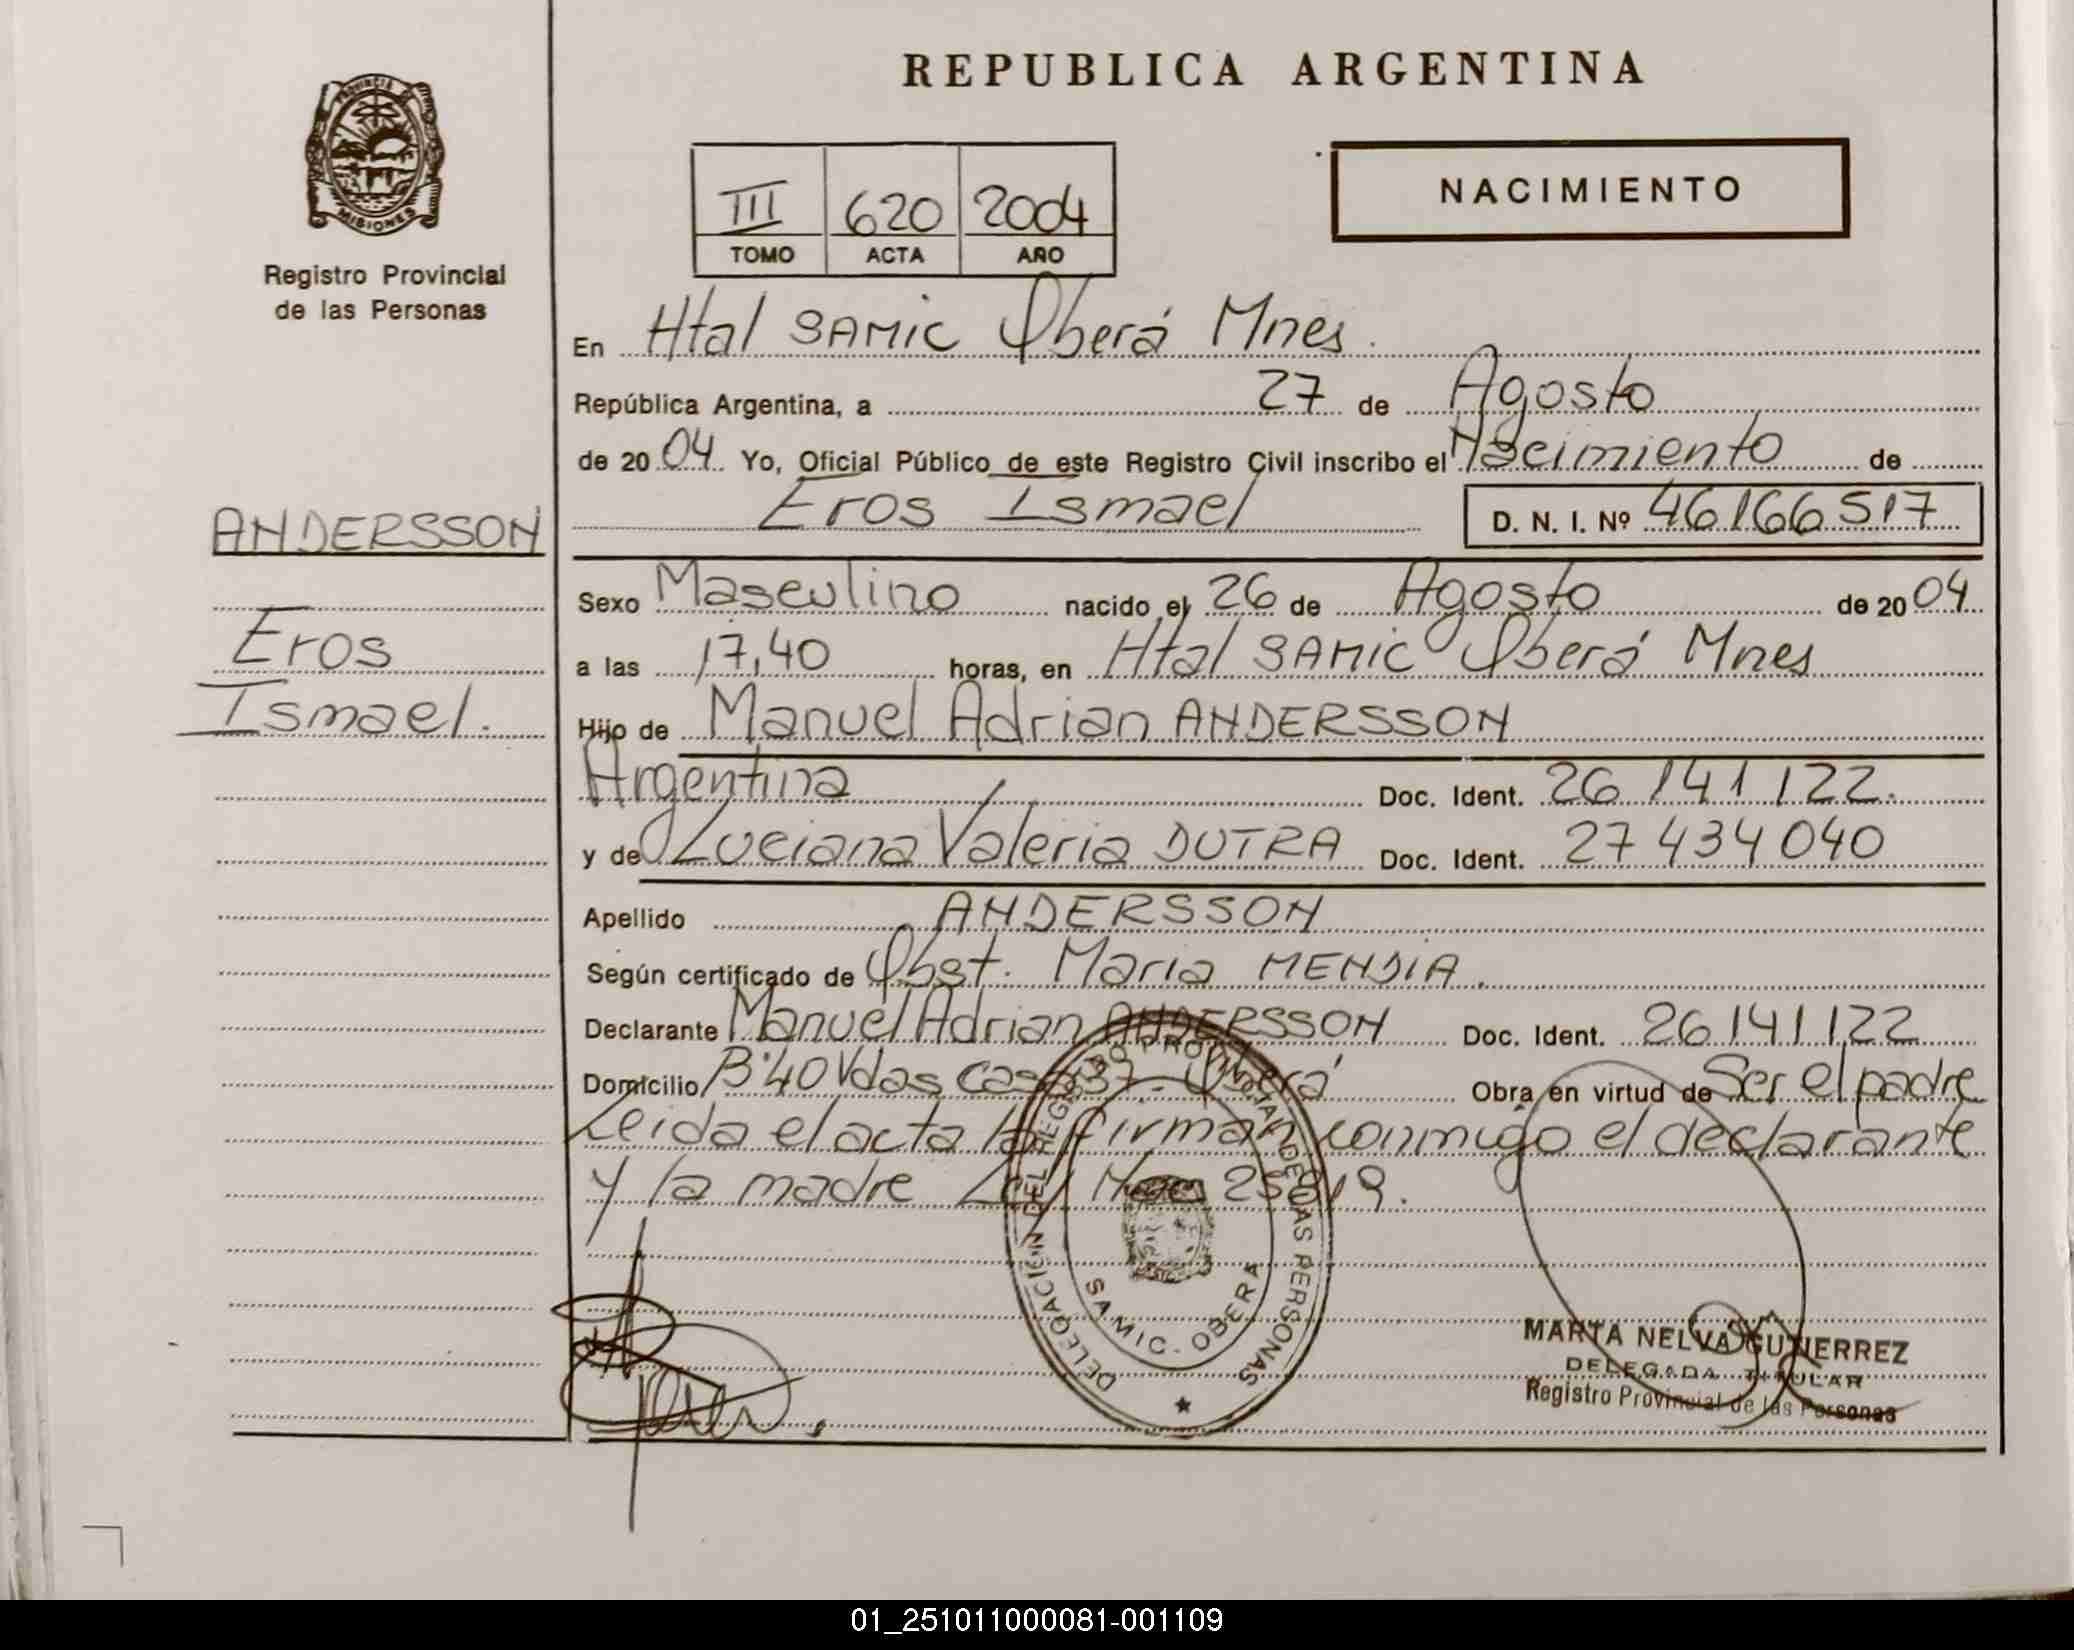 REPUBLICA ARGENTINA
PROVINCIA DE
MISIONES
Registro Provincial
de las Personas
III 620 2004
TOMO ACTA AÑO
NACIMIENTO
En Htal SAMIC Oberá Mnes.
República Argentina, a 27 de Agosto
de 2004 Yo, Oficial Público de este Registro Civil inscribo el Nacimiento de
Eros Ismael D. N. I. Nº 46166517
ANDERSSON
Eros
Ismael.
Sexo Masculino nacido el 26 de Agosto de 2004
a las 17,40 horas, en Htal SAMIC Oberá Mnes
Hijo de Manuel Adrian ANDERSSON
Argentina Doc. Ident. 26 141 122.
y de Luciana Valeria DUTRA Doc. Ident. 27 434 040
Apellido ANDERSSON
Según certificado de Obst. Maria MENDIA.
Declarante Manuel Adrian ANDERSSON Doc. Ident. 26 141 122
Domicilio Bº 40 Vdas casa Oberá Obra en virtud de Ser el padre
Leida el acta la firman conmigo el declarante
y la madre
DELEGACION DEL REGISTRO PROVINCIAL DE LAS PERSONAS
SAMIC - OBERA
MARTA NELVA GUTIERREZ
DELEGADA TITULAR
Registro Provincial de las Personas
01_251011000081-001109